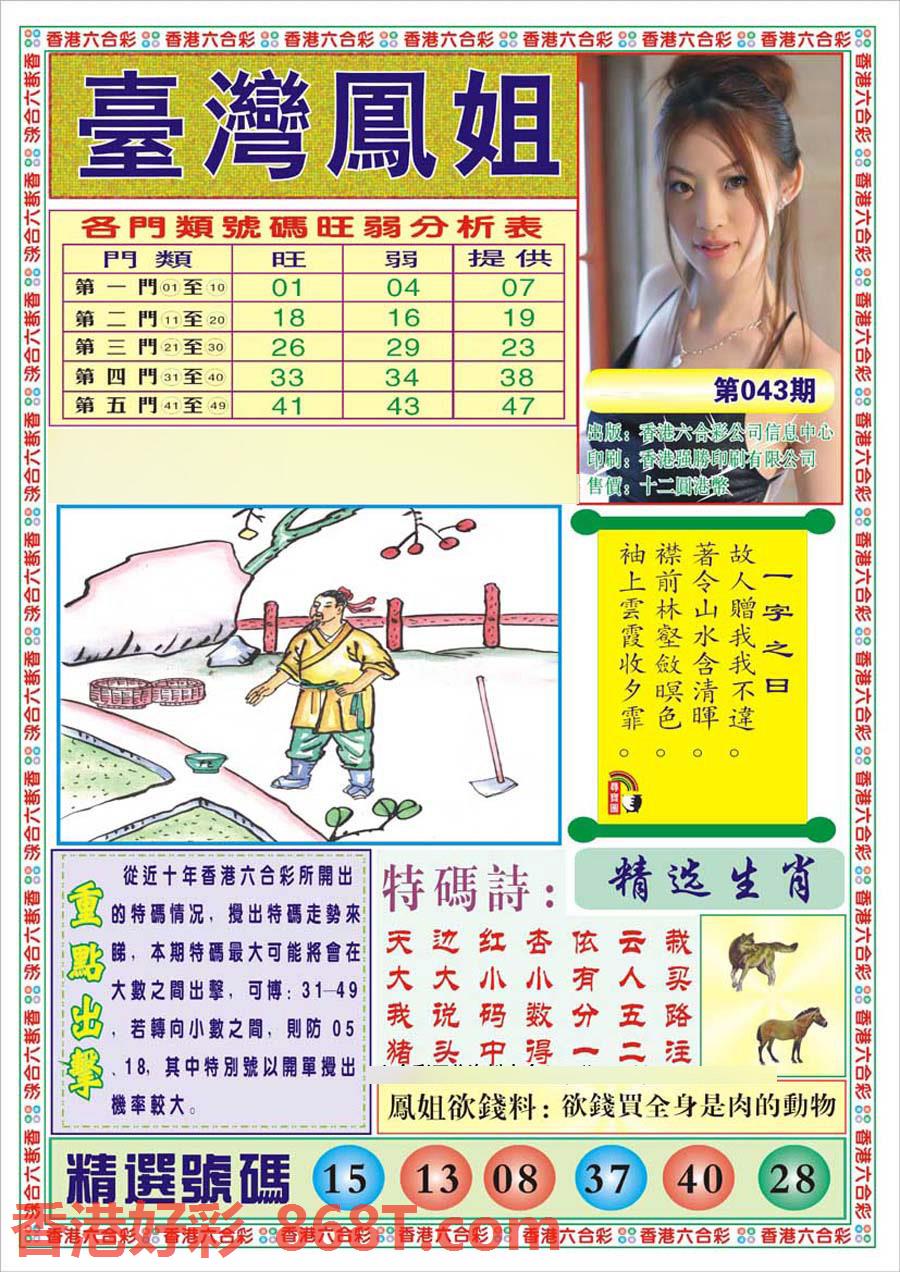 香港六合彩
臺灣鳳姐
各門類號碼旺弱分析表
門類 旺 弱 提供
第一門01至10 01 04 07
第二門11至20 18 16 19
第三門21至30 26 29 23
第四門31至40 33 34 38
第五門41至49 41 43 47
第043期
出版：香港六合彩公司信息中心
印刷：香港强勝印刷有限公司
售價：十二圓港幣
一字之曰
故人贈我我不違。
著令山水含清暉。
襟前林壑斂暝色。
袖上雲霞收夕霏。
尋寶圖
重點出擊
從近十年香港六合彩所開出
的特碼情况，攪出特碼走勢來
睇，本期特碼最大可能將會在
大數之間出擊，可博：31—49
，若轉向小數之間，則防 05
、18，其中特別號以開單攪出
機率較大。
特碼詩：
天边红杏依云栽
大大小小有人买
我说码数分五路
猪头中得一二注
精选生肖
鳳姐欲錢料：欲錢買全身是肉的動物
精選號碼 15 13 08 37 40 28
香港好彩 868T.com
香港六合彩